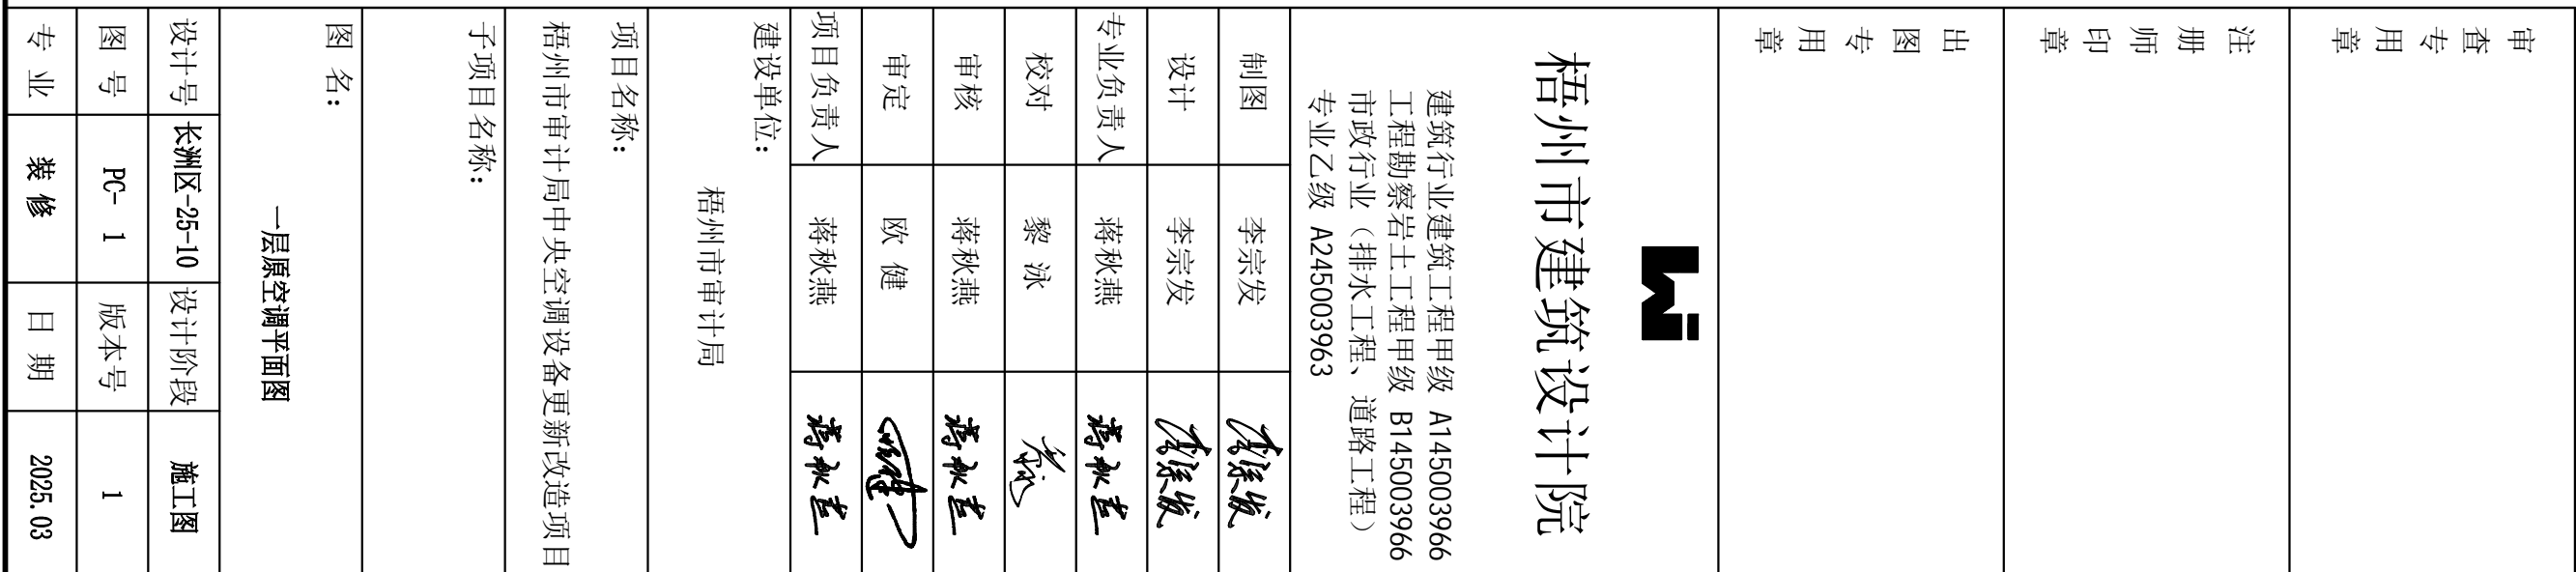 审查专用章
注册师印章
出图专用章
梧州市建筑设计院
建筑行业建筑工程甲级 A145003966
工程勘察岩土工程甲级 B145003966
市政行业（排水工程、道路工程）
专业乙级 A245003963
制图 李宗发
设计 李宗发
专业负责人 蒋秋燕
校对 黎 泳
审核 蒋秋燕
审定 欧 健
项目负责人 蒋秋燕
建设单位:
梧州市审计局
项目名称:
梧州市审计局中央空调设备更新改造项目
子项目名称:
图 名:
一层原空调平面图
设计号 长洲区-25-10 设计阶段 施工图
图 号 PC- 1 版本号 1
专 业 装 修 日 期 2025.03